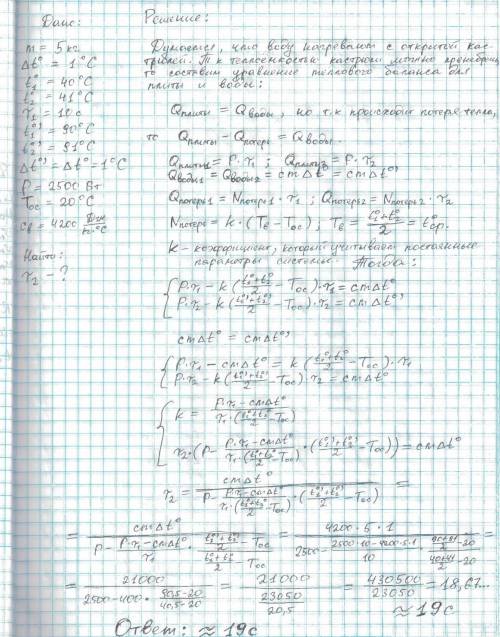 Дано:
m = 5 кг
Δt° = 1°C
t₁° = 40°C
t₂° = 41°C
τ₁ = 10с
t₁°' = 90°C
t₂°' = 91°C
Δt°' = Δt° = 1°C
P = 2500 Вт
Tос = 20°C
cв = 4200 Дж/кг·°C
Найти:
τ₂ - ?
Решение:
Думаемся, что воду нагревают с открытой кас-
трюлей. Т.к теплоемкостью кастрюли можно пренебречь,
то составим уравнение теплового баланса для
плиты и воды:
Qплиты = Qводы, но т.к происходит потеря тепла,
то Qплиты - Qпотерь = Qводы.
Qплиты1 = P·τ₁ ; Qплиты2 = P·τ₂
Qводы1 = Qводы2 = cmΔt° = cmΔt°'
Qпотерь1 = Nпотерь1 · τ₁ ; Qпотерь2 = Nпотерь2 · τ₂
Nпотерь = k·(Tв - Tос) ; Tв = (t₁°+t₂°)/2 = t°ср.
k - коэффициент, который учитывает постоянные
параметры системы. Тогда:
P·τ₁ - k((t₁°+t₂°)/2 - Tос)·τ₁ = cmΔt°
P·τ₂ - k((t₁°'+t₂°')/2 - Tос)·τ₂ = cmΔt°'
cmΔt° = cmΔt°'
P·τ₁ - cmΔt° = k((t₁°+t₂°)/2 - Tос)·τ₁
P·τ₂ - k((t₁°'+t₂°')/2 - Tос)·τ₂ = cmΔt°
k = (P·τ₁ - cmΔt°)/(τ₁·((t₁°+t₂°)/2 - Tос))
τ₂·(P - (P·τ₁ - cmΔt°)/(τ₁·((t₁°+t₂°)/2 - Tос)) · ((t₁°'+t₂°')/2 - Tос)) = cmΔt°
τ₂ = cmΔt°/(P - (P·τ₁ - cmΔt°)/(τ₁·((t₁°+t₂°)/2 - Tос)) · ((t₁°'+t₂°')/2 - Tос)) =
= cmΔt°/(P - (P·τ₁ - cmΔt°)/τ₁ · ((t₁°'+t₂°')/2 - Tос)/((t₁°+t₂°)/2 - Tос)) = 4200·5·1/(2500 - (2500·10 - 4200·5·1)/10 · ((90+91)/2 - 20)/((40+41)/2 - 20)) =
= 21000/(2500 - 400·(90,5-20)/(40,5-20)) = 21000/(23050/20,5) = 430500/23050 = 18,67...
≈ 19с
Ответ: ≈ 19с